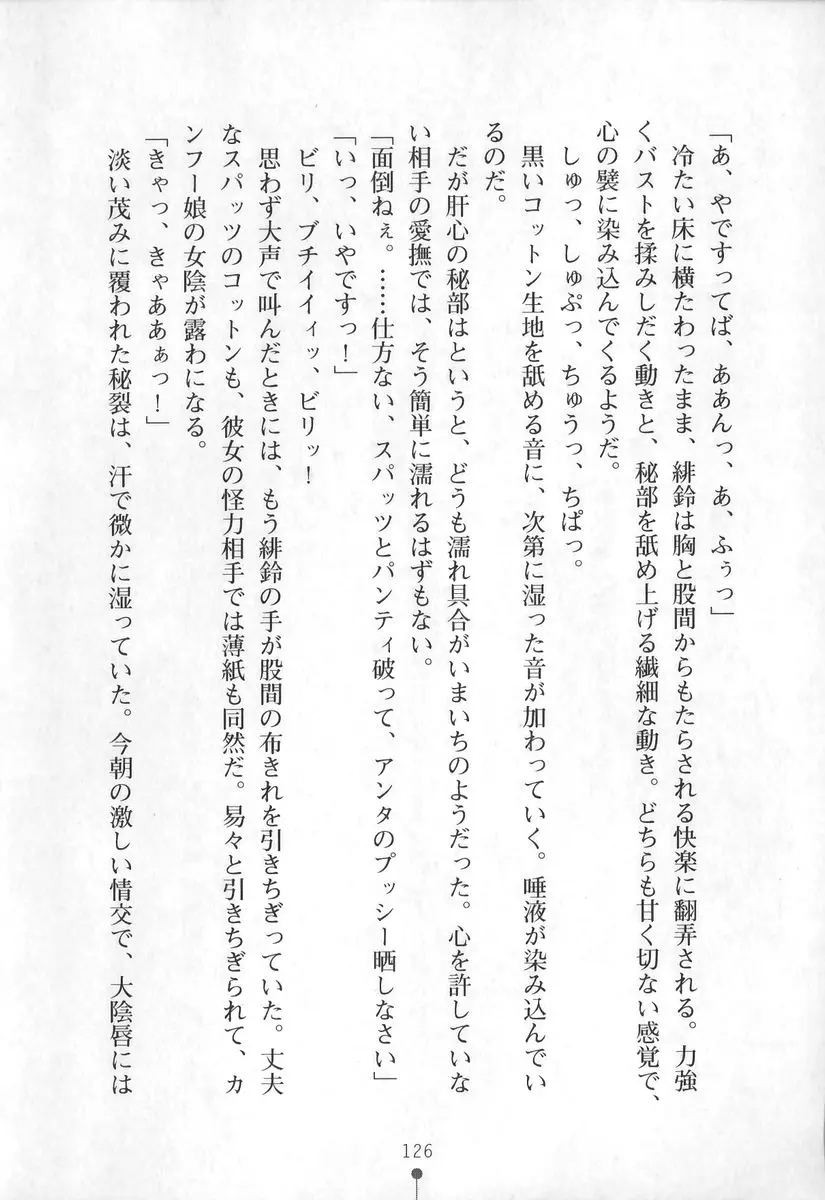 「あ、やですってば、ああんっ、あ、ふぅっ」
冷たい床に横たわったまま、緋鈴は胸と股間からもたらされる快楽に翻弄される。力強
くバストを揉みしだく動きと、秘部を舐め上げる繊細な動き。どちらも甘く切ない感覚で、
心の襞に染み込んでくるようだ。
しゅっ、しゅぷっ、ちゅうっ、ちぱっ。
黒いコットン生地を舐める音に、次第に湿った音が加わっていく。唾液が染み込んでい
るのだ。
だが肝心の秘部はというと、どうも濡れ具合がいまいちのようだった。心を許していな
い相手の愛撫では、そう簡単に濡れるはずもない。
「面倒ねぇ。……仕方ない、スパッツとパンティ破って、アンタのプッシー晒しなさい」
「いっ、いやですっ！」
ビリ、ブチイイィッ、ビリッ！
思わず大声で叫んだときには、もう緋鈴の手が股間の布きれを引きちぎっていた。丈夫
なスパッツのコットンも、彼女の怪力相手では薄紙も同然だ。易々と引きちぎられて、カ
ンフー娘の女陰が露わになる。
「きゃっ、きゃああぁっ！」
淡い茂みに覆われた秘裂は、汗で微かに湿っていた。今朝の激しい情交で、大陰唇には
126